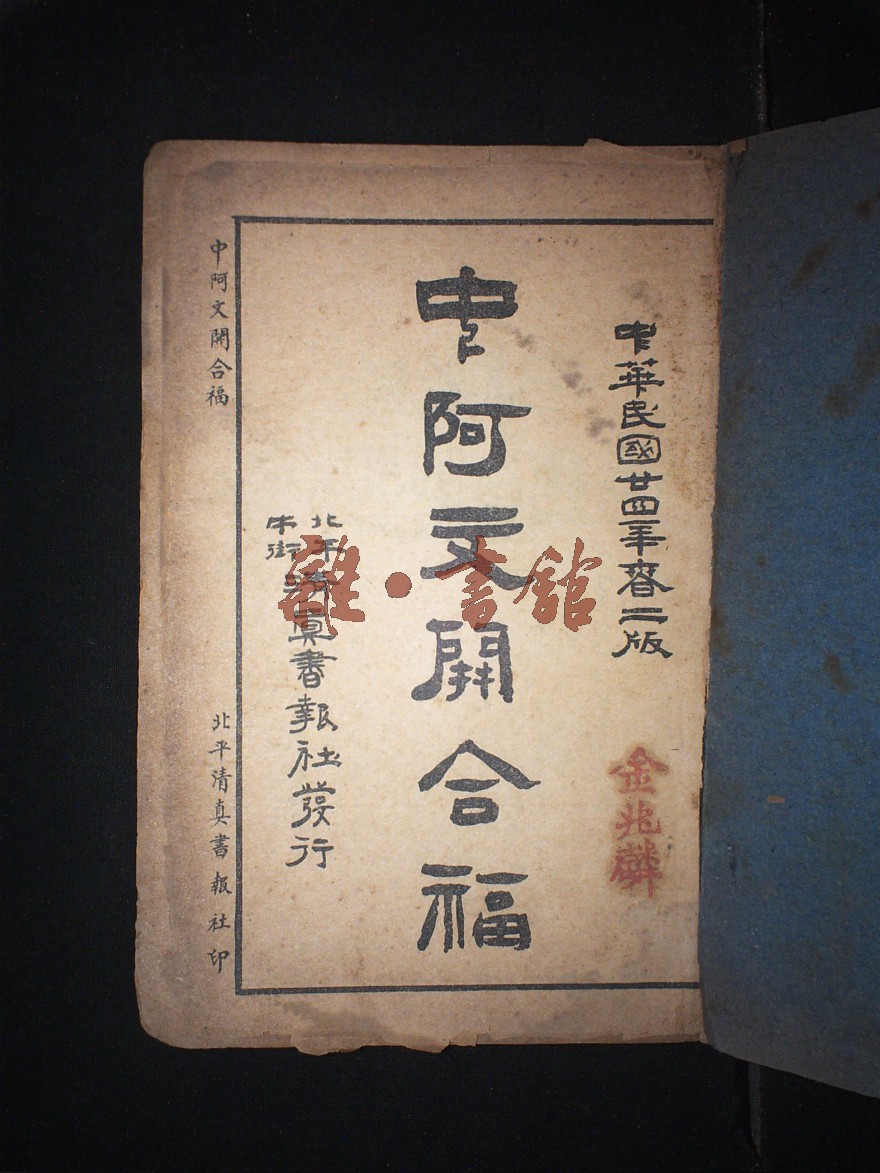 中華民國廿四年春二版
金兆麟
中阿文開合福
北平
牛街
清真書報社發行
中阿文開合福
北平清真書報社印
雒·書館